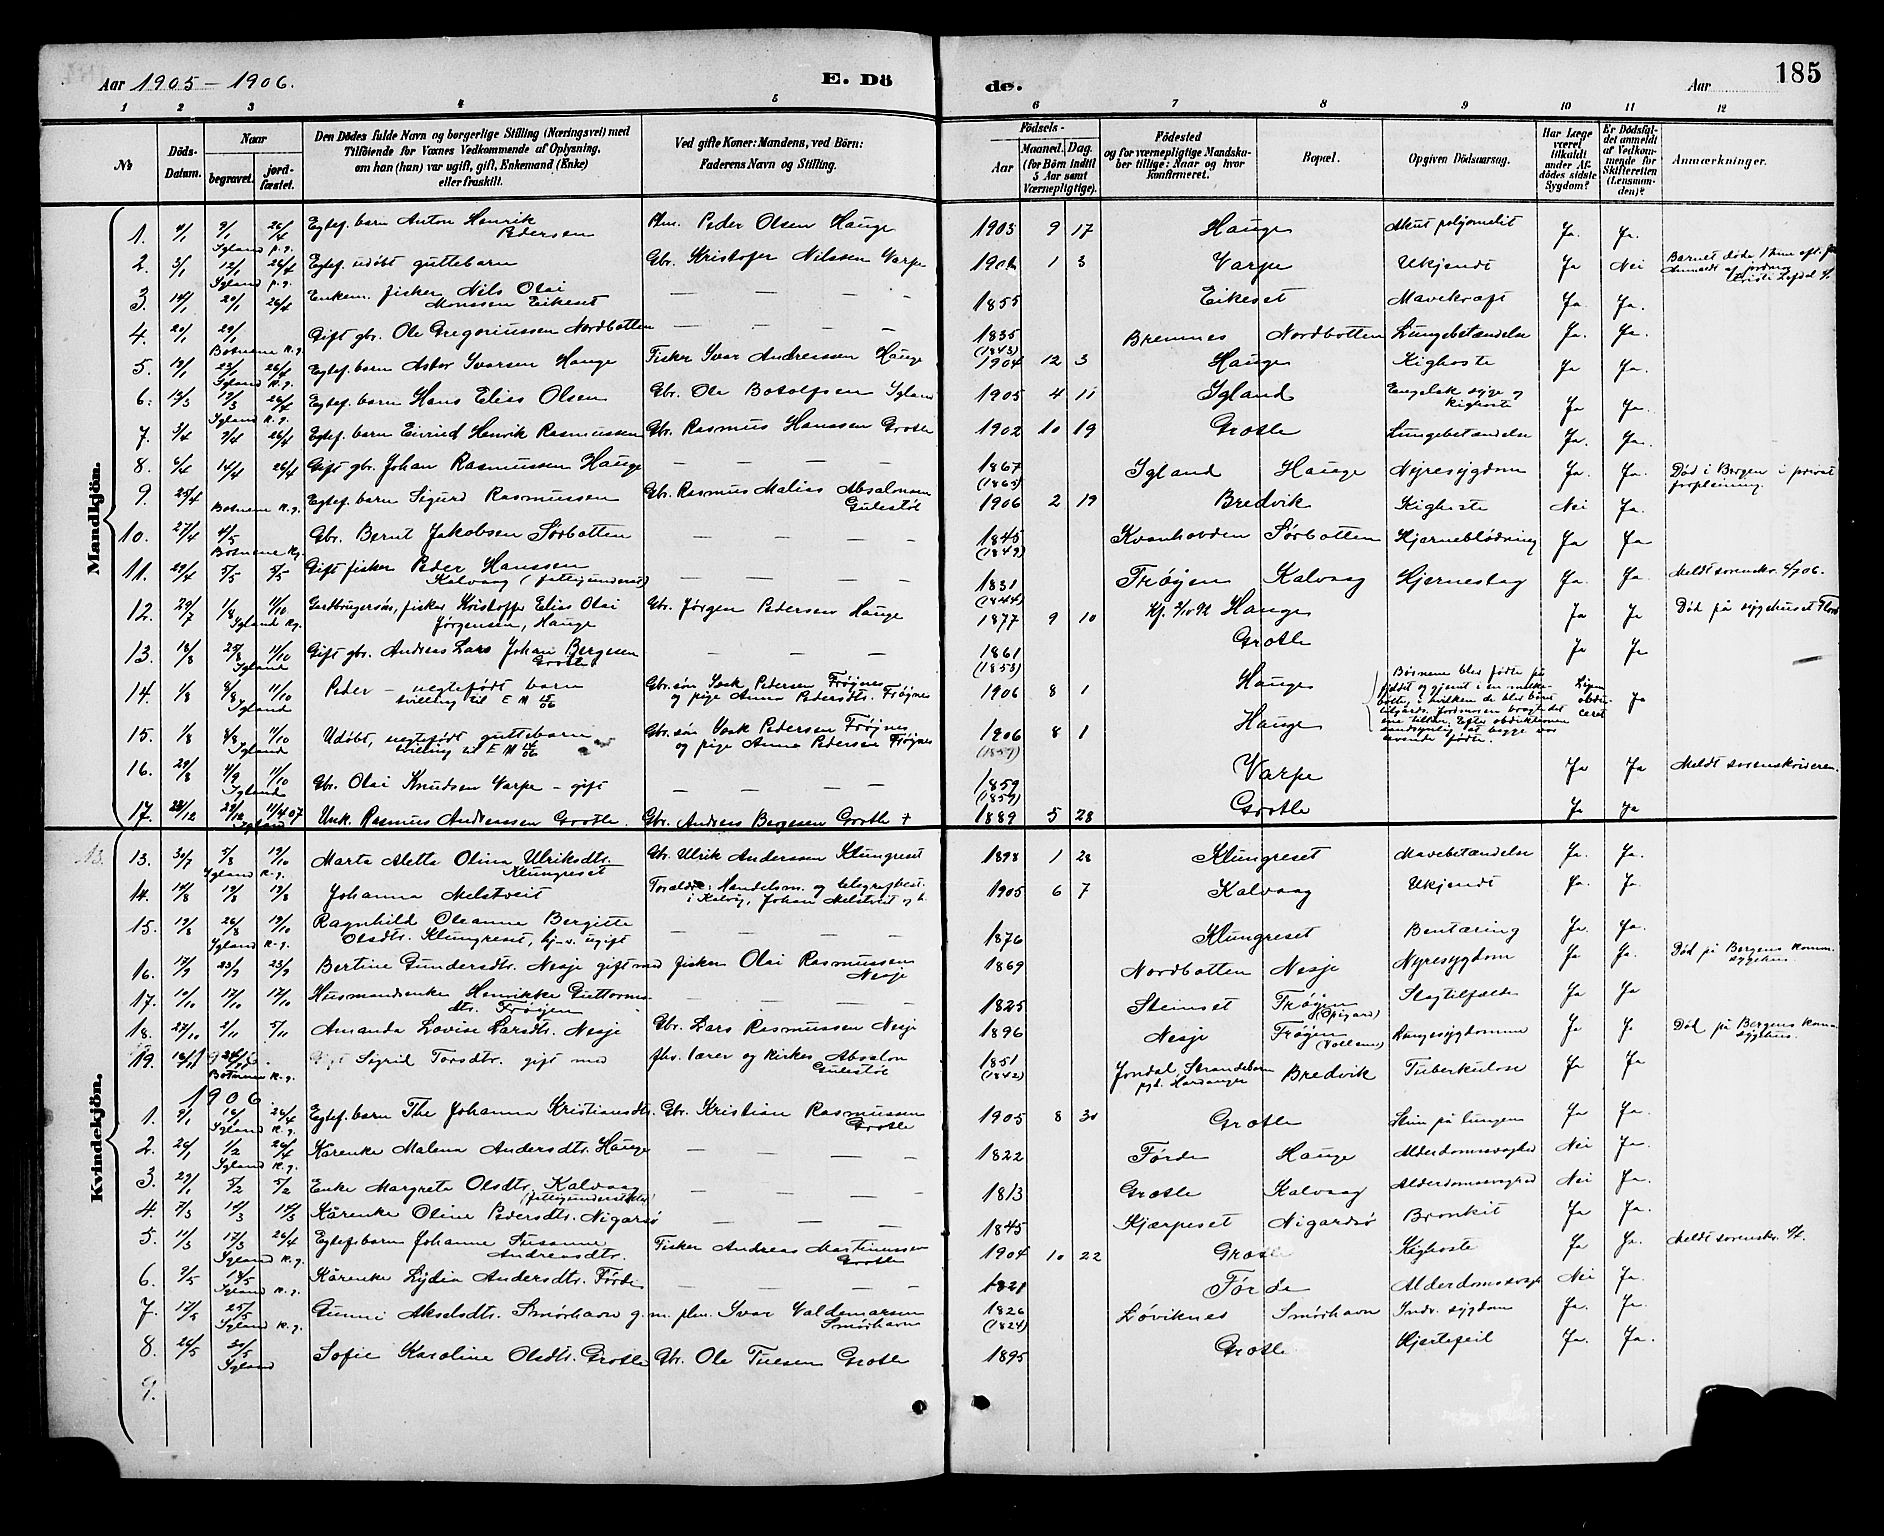 Aar 1905 – 1906. E. Dö de. Aar 185
1 2 3 4 5 6 7 8 9 10 11 12
No Döds-Datum. Naar begravet. jord-fæstet. Den Dödes fulde Navn og borgerlige Stilling (Næringsvei) med Tilföiende for Voxnes Vedkommende af Oplysning, om han (hun) var ugift, gift, Enkemand (Enke) eller fraskilt. Ved gifte Koner: Mandens, ved Börn: Faderens Navn og Stilling. Födsels- Aar Maaned. Dag. (for Börn indtil 5 Aar samt Værnepligtige). Födested og for værnepligtige Mandskaber tillige: Naar og hvor konfirmeret. Bopæl. Opgiven Dödsaarsag. Har Læge været tilkaldt under Afdödes sidste Sygdom? Er Dödsfaldet anmeldt af Vedkommende for Skifteretten (Lensmanden)? Anmærkninger.
Mandkjön.
1. 9/1 26/4 Egtef. barn Anton Henrik Pedersen Plm. Peder Olsen Hauge 1905 9 17 Hauge Akut poljomelit Ja. Ja.
Igland k.g.
2. 3/1 12/1 26/4 Egtef. udöbt guttebarn Gbr. Kristofer Nilssen Varpe 1 3 Varpe Ukjendt Ja Nei Barnet döde
Igland k.g.
3. 14/1 20/1 26/4 Enkem. fisker Nils Olai Monssen Eikeset 1855 Eikeset Mavekræft Ja. Ja.
4. 20/1 29/1 Gift gbr. Ole Gregoriussen Nordbotten 1835 (1843) Bremnes Nordbotten Lungebetændelse Ja. Ja.
Botnene k.g.
5. 19/1 23/1 26/4 Egtef. barn Astor Ivarsen Hauge Fisker Ivar Andreassen Hauge 1904 12 3 Hauge Kighoste Ja Ja.
Igland k.g.
6. 13/3 19/3 26/4 Egtef. barn Hans Elias Olsen Gbr. Ole Botolfsen Igland 1905 4 11 Igland Engelsk syge og kighoste Ja Ja.
Igland k.g.
7. 3/4 9/4 26/4 Egtef. barn Eivind Henrik Rasmussen Gbr. Rasmus Hanssen Grotle 1902 10 19 Grotle Lungebetændelse Ja. Ja.
8. 6/4 14/4 26/4 Gift gbr. Johan Rasmussen Hauge 1867 (1865) Igland Hauge Nyresygdom Ja. Ja. Död i Bergen i privat forpleining.
9. 25/4 Botnene k.g. Egtef. barn Sigurd Rasmussen Gbr. Rasmus Malias Absalonsen Gulestöl 1906 2 19 Bredvik Kighoste Nei Ja.
10. 27/4 4/5 Gbr. Bernt Jakobsen Sörbotten 1845 (1849) Kvanhovden Sörbotten Hjerneblödning Ja Ja
Botnene k.g.
11. 29/4 5/5 5/5 Gift fisker Peder Hanssen Kalvaag (fattigunderst) 1831 (1844) Fröyen Kalvaag Hjerneslag Ja. Ja. Meldt sorenskr. 4/7 06.
12. 29/7 1/8 11/10 Gardbrugersön, fisker Kristoffer Elias Olai Jörgensen, Hauge Gbr. Jörgen Pedersen Hauge 1877 9 10 Hauge Ja Ja Död på sygehuset Florö
Igland k.g.
13. 18/8 25/8 11/10 Gift gbr. Andreas Lars Johan Bergesen Grotle 1861 (1853) Grotle Ja Ja
Igland
14. 1/8 8/8 11/10 Peder – uegtefödt barn tvilling til E M 15/06 Gbr. sön Isak Pedersen Fröynes og pige Anna Pedersdtr. Fröynes 1906 8 1 Hauge Börnene blev födte på fjeldet og gjemt i en melke- Ligene obduceret Ja
Igland
15. 1/8 8/8 11/10 Udöbt, uegtefödt guttebarn tvilling til E M 14/06 Gbr. sön Isak Pedersen Fröynes og pige Anna Pedersen Fröynes 1906 8 1 Hauge
Igland
16. 29/8 4/9 11/10 Gbr. Olai Knudsen Varpe – gift 1859 (1857) Varpe Ja Ja Meldt sorenskriveren.
Igland
17. 23/12 29/12 11/4 07 Unk. Rasmus Andreassen Grotle. Gbr. Andreas Bergesen Grotle + 1889 5 28 Grotle Ja Ja
Igland
Kvindekjön.
13. 30/7 5/8 19/10 Marta Alette Olina Ulriksdtr. Klungreset Gbr. Ulrik Anderssen Klungreset 1898 1 28 Klungreset Mavebetændelse Ja. Ja.
Igland k.g.
14. 14/8 19/8 19/8 Johanna Melstveit Forældre: Handelsm. og telegrafbest. i Kalvåg, Johan Melstveit og h. 1905 6 7 Kalvaag Ukjendt Ja. Ja.
15. 19/8 26/8 19/10 Ragnhild Oleanna Bergitte Olsdtr. Klungreset, hj.v. ugift 1876 Klungreset Bentæring Ja Ja.
Igland k.g.
16. 17/9 23/9 23/9 Bertine Gundersdtr. Nesje gift med fisker Olai Rasmussen Nesje 1869 Nordbotten Nesje Nyresygdom Ja Ja. Död på Bergens komm. sygehus.
17. 10/10 17/10 17/10 Husmandsenke Henrikke Guttormsdtr. Fröyen 1825 Steinset Fröyen Slagtilfælde Ja Ja
18. 27/10 2/11 5/11 Amanda Lovise Larsdtr. Nesje Gbr. Lars Rasmussen Nesje 1896 Nesje Fröyen Lungesygdomme Ja Ja Död på Bergens komm. sygehus.
19. Sigrid Torsdtr. gift med fhv. lærer og kirkes. Absalon Gulestöl 1851 (1842) Jondal, Strandebarm pgl. Hardanger Bredvik Tuberkulose Ja Ja
Botnene k.g.
1906
1. 9/1 16/1 26/4 Egtef. barn Thea Johanna Kristiansdtr. Gbr. Kristian Rasmussen Grotle 1905 8 30 Grotle Slim på lungen Ja Ja.
Igland k.g.
2. 26/1 1/2 26/4 Kårenke Malena Andersdtr. Hauge 1822 Förde Hauge Alderdomssvaghed Nei Ja.
Igland k.g.
3. 29/1 5/2 5/2 Enke Margreta Olsdtr. Kalvaag 1813 Grotle Kalvaag Alderdomssvaghed Nei Ja.
4. 7/3 14/3 14/3 Kårenke Oline Pedersdtr. Nigardsö 1845 Kjærpeset Nigardsö Bronkit Ja Ja.
5. 11/3 17/3 26/4 Egtefsbarn Johanne Susanne Andreasdtr. Fisker Andreas Martinussen Grotle 1904 10 22 Grotle Kighoste Ja Ja. Meldt sorenskr.
Igland k.g.
6. 9/5 14/5 Kårenke Lydia Andersdtr. Förde 1821 Förde Alderdomssvagh Nei Ja.
Igland k.g.
7. 17/5 25/5 Gunni Akselsdtr. Smörhavn g.m. plm. Ivar Valdemarsen Smörhavn 1826 (1824) Löviknes Smörhavn Indv. sygdom Ja. Ja.
Igland k.g.
8. 26/5 30/5 Sofie Karoline Olsdtr. Grotle Gbr. Ole Tuesen Grotle 1895 Grotle Hjertefeil Ja. Ja.
Igland
9.